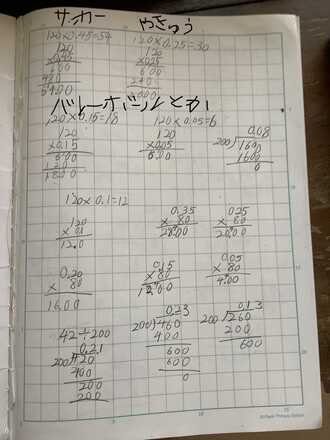 サッカー
やきゅう
120×0.45=54
120×0.25=30
120
×0.45
600
480
5400
120
×0.25
600
240
バレーボールとか
120×0.15=18
120×0.05=6
120
×0.15
600
120
1800
120
×0.05
6.00
0.08
200)1600
1600
0
120×0.1=12
120
12.0
0.35
×80
28.00
0.25
×80
20.00
0.20
×80
16.00
0.15
×80
12.00
0.05
×80
4.00
42÷200
0.21
200)420
400
200
200
0.23
200)460
400
600
600
0
0.13
200)260
200
600